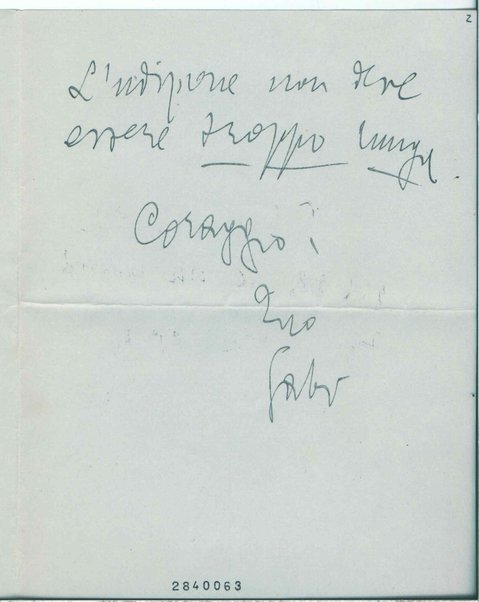 2
non deve
essere troppo lunga.
Coraggio!
Tuo
2840063